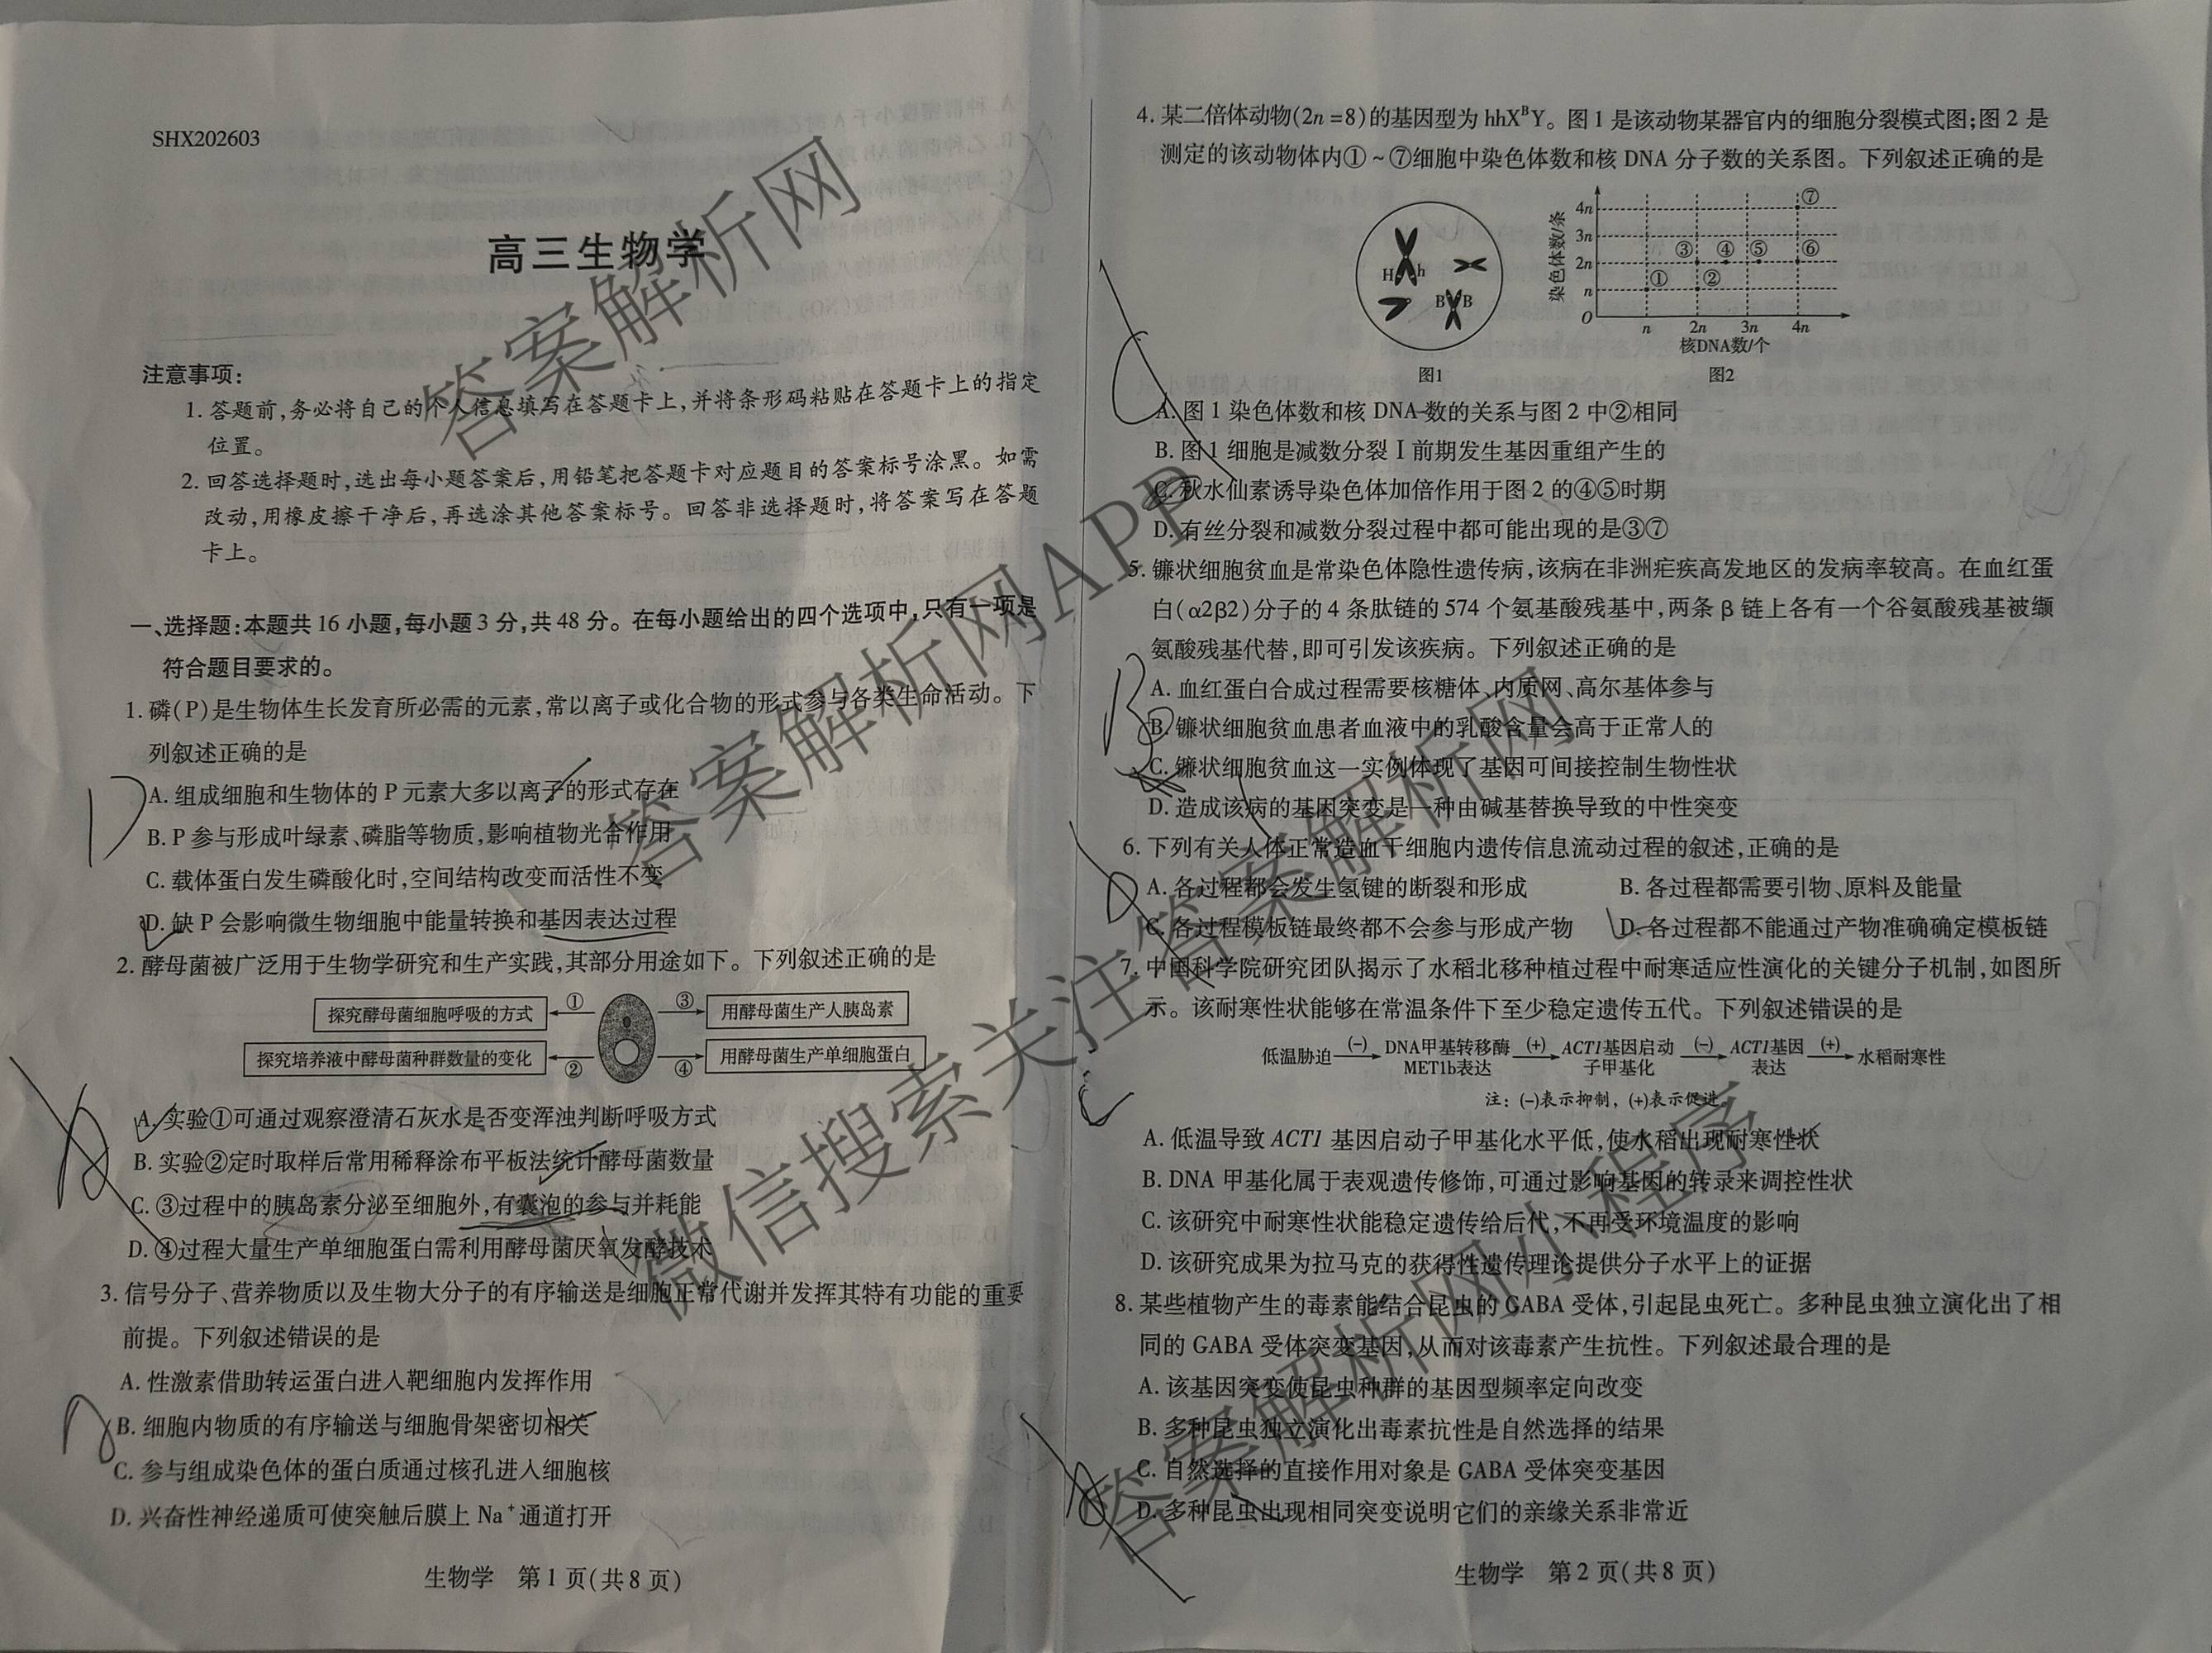 SHX202603
高三生物学
注意事项：
1. 答题前,务必将自己的个人信息填写在答题卡上,并将条形码粘贴在答题卡上的指定
位置。
2. 回答选择题时,选出每小题答案后,用铅笔把答题卡对应题目的答案标号涂黑。如需
改动,用橡皮擦干净后,再选涂其他答案标号。回答非选择题时,将答案写在答题
卡上。
一、选择题：本题共 16 小题,每小题 3 分,共 48 分。在每小题给出的四个选项中,只有一项是
符合题目要求的。
1. 磷(P)是生物体生长发育所必需的元素,常以离子或化合物的形式参与各类生命活动。下
列叙述正确的是
D
A. 组成细胞和生物体的 P 元素大多以离子的形式存在
B. P 参与形成叶绿素、磷脂等物质,影响植物光合作用
C. 载体蛋白发生磷酸化时,空间结构改变而活性不变
D. 缺 P 会影响微生物细胞中能量转换和基因表达过程
2. 酵母菌被广泛用于生物学研究和生产实践,其部分用途如下。下列叙述正确的是
探究酵母菌细胞呼吸的方式 ① ③ 用酵母菌生产人胰岛素
探究培养液中酵母菌种群数量的变化 ② ④ 用酵母菌生产单细胞蛋白
A. 实验①可通过观察澄清石灰水是否变浑浊判断呼吸方式
B. 实验②定时取样后常用稀释涂布平板法统计酵母菌数量
C. ③过程中的胰岛素分泌至细胞外,有囊泡的参与并耗能
D. ④过程大量生产单细胞蛋白需利用酵母菌厌氧发酵技术
3. 信号分子、营养物质以及生物大分子的有序输送是细胞正常代谢并发挥其特有功能的重要
前提。下列叙述错误的是
A. 性激素借助转运蛋白进入靶细胞内发挥作用
B. 细胞内物质的有序输送与细胞骨架密切相关
C. 参与组成染色体的蛋白质通过核孔进入细胞核
D. 兴奋性神经递质可使突触后膜上 Na⁺ 通道打开
生物学 第 1 页(共 8 页)
4. 某二倍体动物(2n=8)的基因型为 hhXᴮY。图 1 是该动物某器官内的细胞分裂模式图;图 2 是
测定的该动物体内①~⑦细胞中染色体数和核 DNA 分子数的关系图。下列叙述正确的是
H h
B B
图1
染色体数/条
4n
3n
2n
n
O
① ② ③ ④ ⑤ ⑥ ⑦
n 2n 3n 4n
核DNA数/个
图2
A. 图 1 染色体数和核 DNA 数的关系与图 2 中②相同
B. 图 1 细胞是减数分裂 Ⅰ 前期发生基因重组产生的
C. 秋水仙素诱导染色体加倍作用于图 2 的④⑤时期
D. 有丝分裂和减数分裂过程中都可能出现的是③⑦
5. 镰状细胞贫血是常染色体隐性遗传病,该病在非洲疟疾高发地区的发病率较高。在血红蛋
白(α2β2)分子的 4 条肽链的 574 个氨基酸残基中,两条 β 链上各有一个谷氨酸残基被缬
氨酸残基代替,即可引发该疾病。下列叙述正确的是
B
A. 血红蛋白合成过程需要核糖体、内质网、高尔基体参与
B. 镰状细胞贫血患者血液中的乳酸含量会高于正常人的
C. 镰状细胞贫血这一实例体现了基因可间接控制生物性状
D. 造成该病的基因突变是一种由碱基替换导致的中性突变
6. 下列有关人体正常造血干细胞内遗传信息流动过程的叙述,正确的是
A. 各过程都会发生氢键的断裂和形成 B. 各过程都需要引物、原料及能量
C. 各过程模板链最终都不会参与形成产物 D. 各过程都不能通过产物准确确定模板链
7. 中国科学院研究团队揭示了水稻北移种植过程中耐寒适应性演化的关键分子机制,如图所
示。该耐寒性状能够在常温条件下至少稳定遗传五代。下列叙述错误的是
低温胁迫 (−) DNA甲基转移酶MET1b表达 (+) ACT1基因启动子甲基化 (−) ACT1基因表达 (+) 水稻耐寒性
注：(−)表示抑制，(+)表示促进。
C
A. 低温导致 ACT1 基因启动子甲基化水平低,使水稻出现耐寒性状
B. DNA 甲基化属于表观遗传修饰,可通过影响基因的转录来调控性状
C. 该研究中耐寒性状能稳定遗传给后代,不再受环境温度的影响
D. 该研究成果为拉马克的获得性遗传理论提供分子水平上的证据
8. 某些植物产生的毒素能结合昆虫的 GABA 受体,引起昆虫死亡。多种昆虫独立演化出了相
同的 GABA 受体突变基因,从而对该毒素产生抗性。下列叙述最合理的是
A. 该基因突变使昆虫种群的基因型频率定向改变
B. 多种昆虫独立演化出毒素抗性是自然选择的结果
C. 自然选择的直接作用对象是 GABA 受体突变基因
D. 多种昆虫出现相同突变说明它们的亲缘关系非常近
生物学 第 2 页(共 8 页)
答案解析网
答案解析网APP
微信搜索关注答案解析网
答案解析网小程序